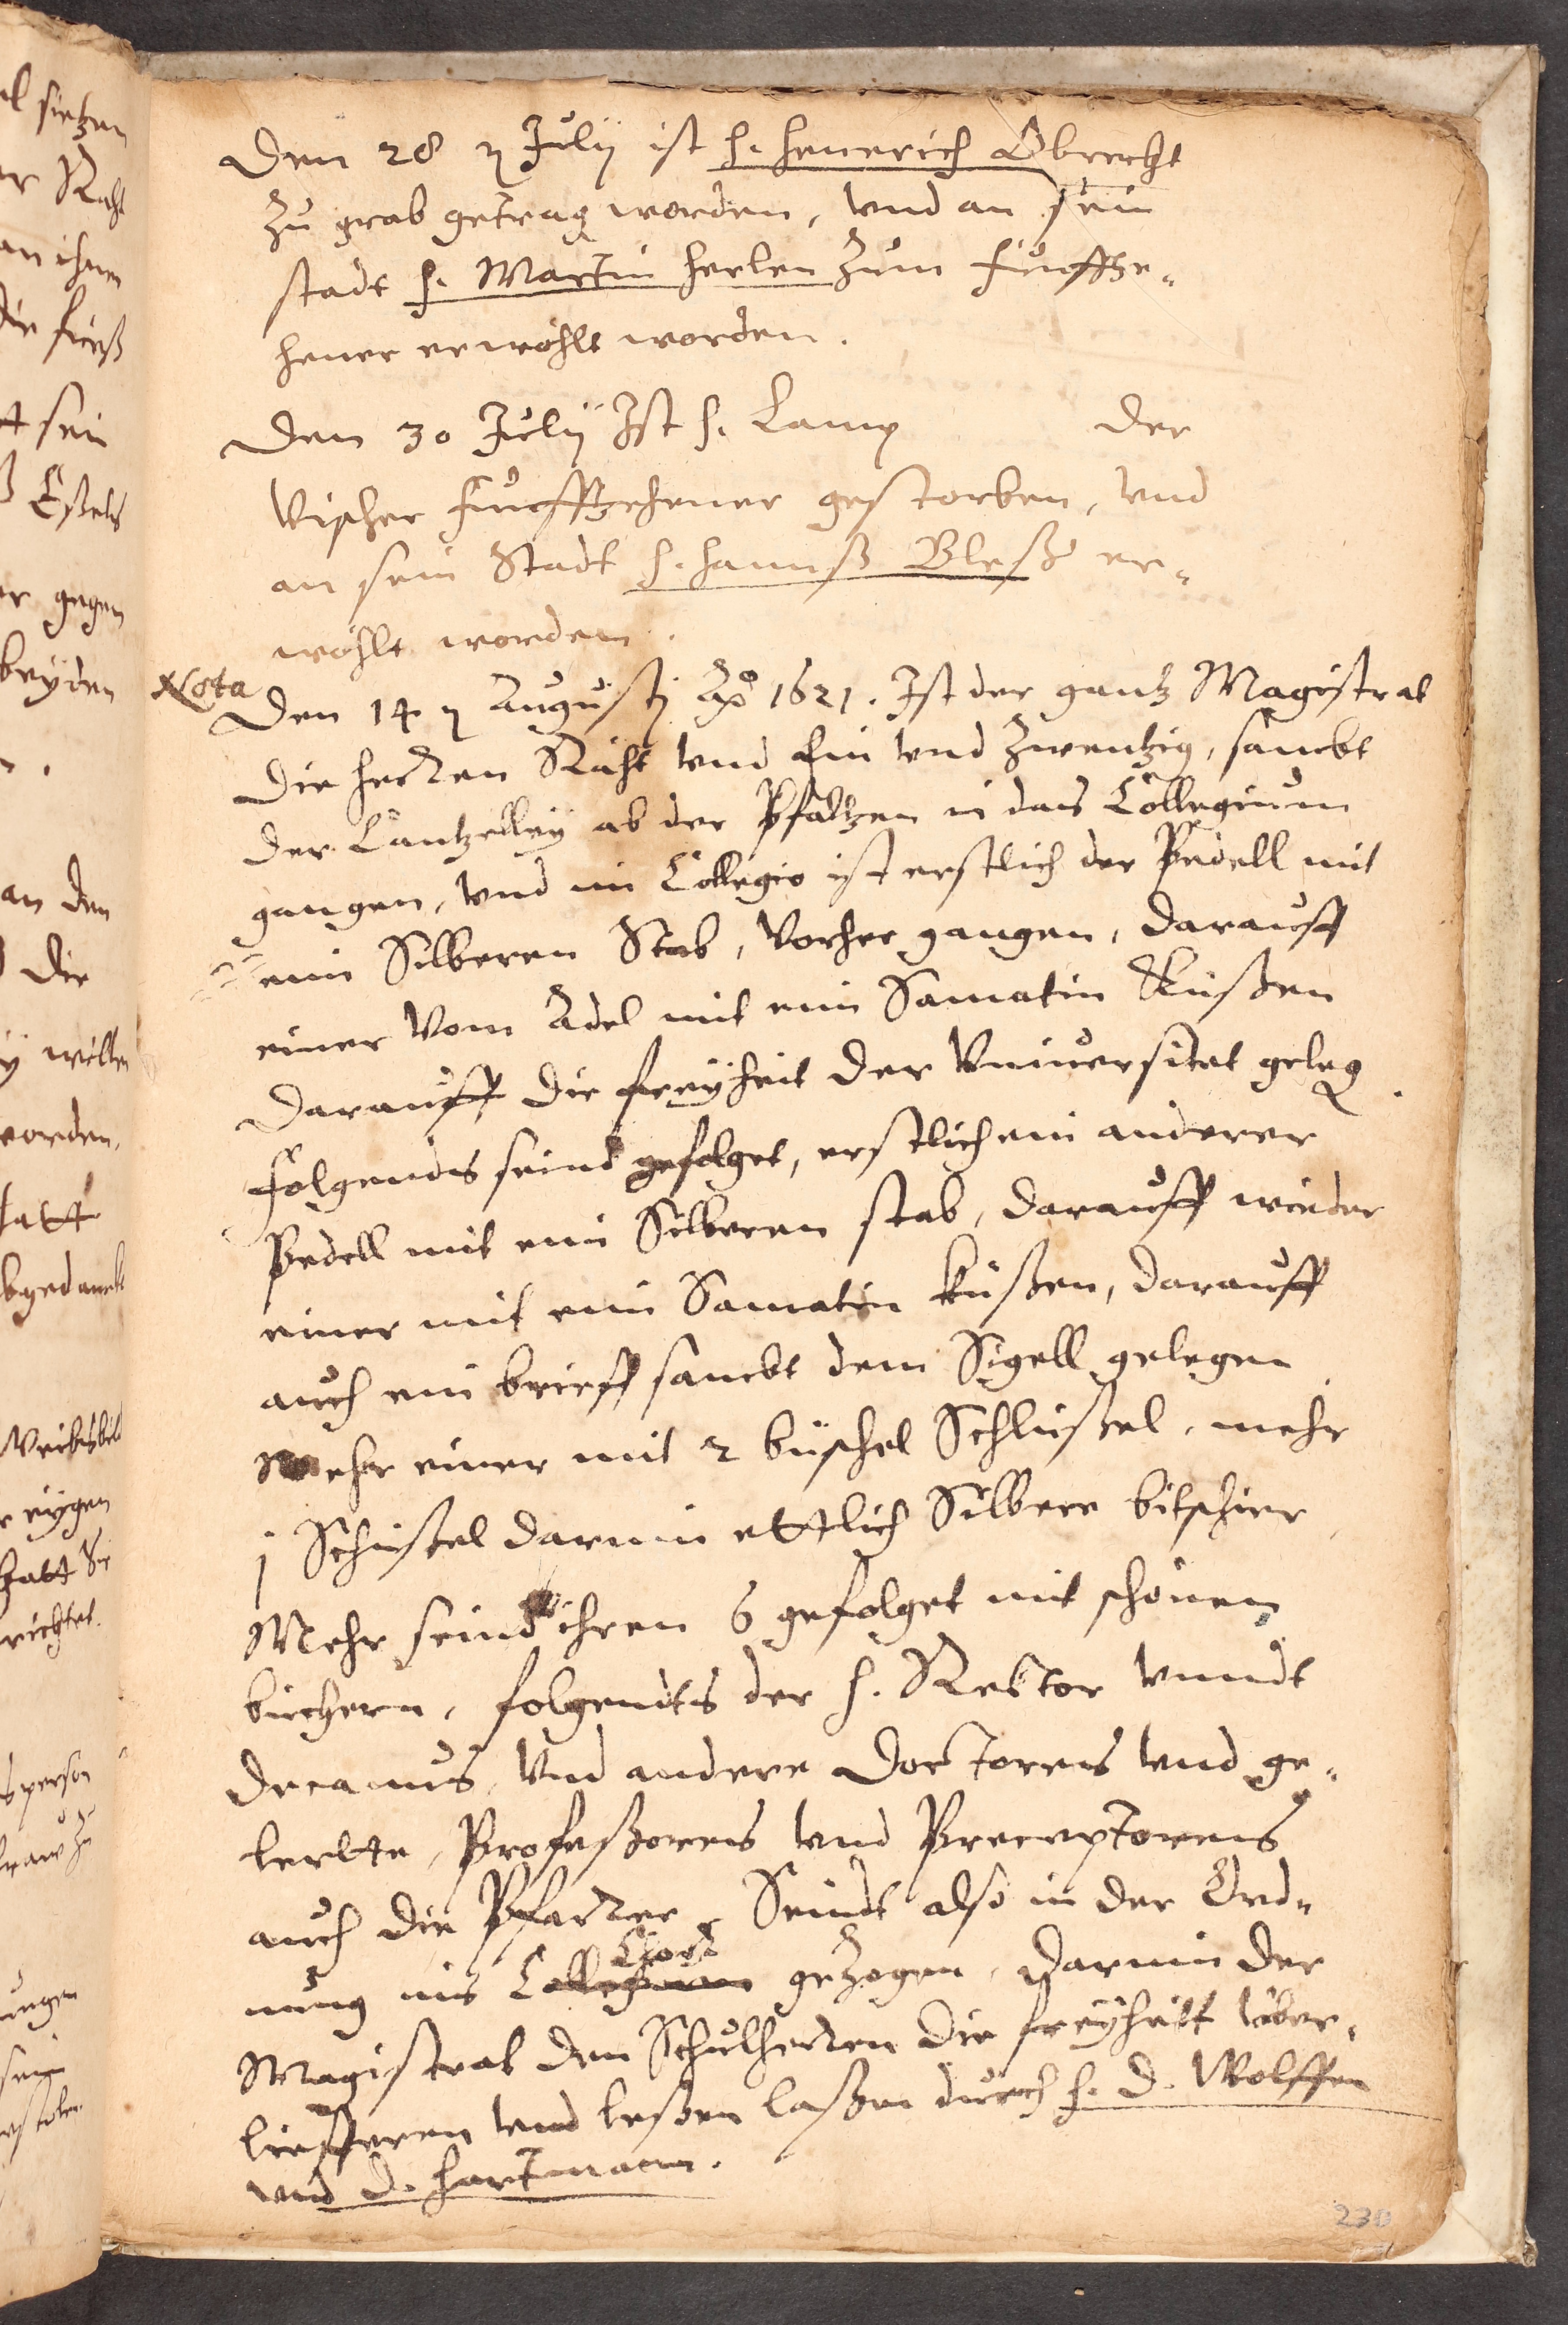 Den 28 ꝛ Julÿ ist h. Henerich Obrecht
zu grab getrag worden, vnd an sein
stadt h. Martin Herlen zum Funffze„
hener erwöhlt worden.
Den 30 Julÿ Ist h. Lamp der
Vischer Funffzehener gestorben, vnd
an sein Stadt h. Hannß Bleß er„
wöhlt worden.
Nota
Den 14 ꝛ Augustj Aō 1621. Ist der gantz Magistrat
Die herren Räht vnd Ein vnd Zwentzig, sambt
Der Cantzelleÿ ab der Pfaltzen in das Collegium
gangen, vnd im Collegio ist erstlich der Pedell mit
eim Silberen Stab, Vorher gangen, darauff
einer Vom Adel mit eim Samatin Küßen
Darauff die freÿheit der Vniuersitet geleg.
Folgends seind gefolget, erstlich ein anderer
Pedell mit eim Silberen stab, darauff wieder
einer mit eim Samatin küßen, darauff
auch ein brieff sambt dem Sigell gelegen
Mehr einer mit 2 büschel Schlüßel, mehr
j Schüßel darinn ettlich Silbere bitschier
Mehr seind ihren 6 gefolget mit schönen
büchern, folgendts der h. Rector vnndt
Decanus, Vnd andere Doctores vnd ge„
lerte, Profeßores vnd Preceptores
auch die Pfarrer, Seindt also in der Ord„
nung ins Collegium Chor gezogen, Darinn der
Magistrat den Schulherren die freÿheitt über„
lieffern vnd leßen laßen durch h. D. Wolffen
vnd D. Hartmann.
230